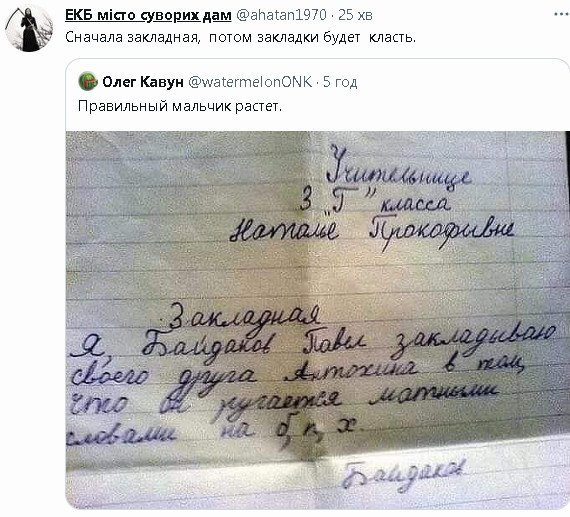 ЕКБ місто суворих дам @ahatan1970 · 25 хв
Сначала закладная, потом закладки будет класть.
Олег Кавун @watermelonONK · 5 год
Правильный мальчик растет.
Учительнице
3 "Г" класса
Наталье Прокофивне
Закладная
Я, Байдаков Павел закладываю
своего друга Антохина в том,
что он ругается матными
словами на б, п, х.
Байдаков